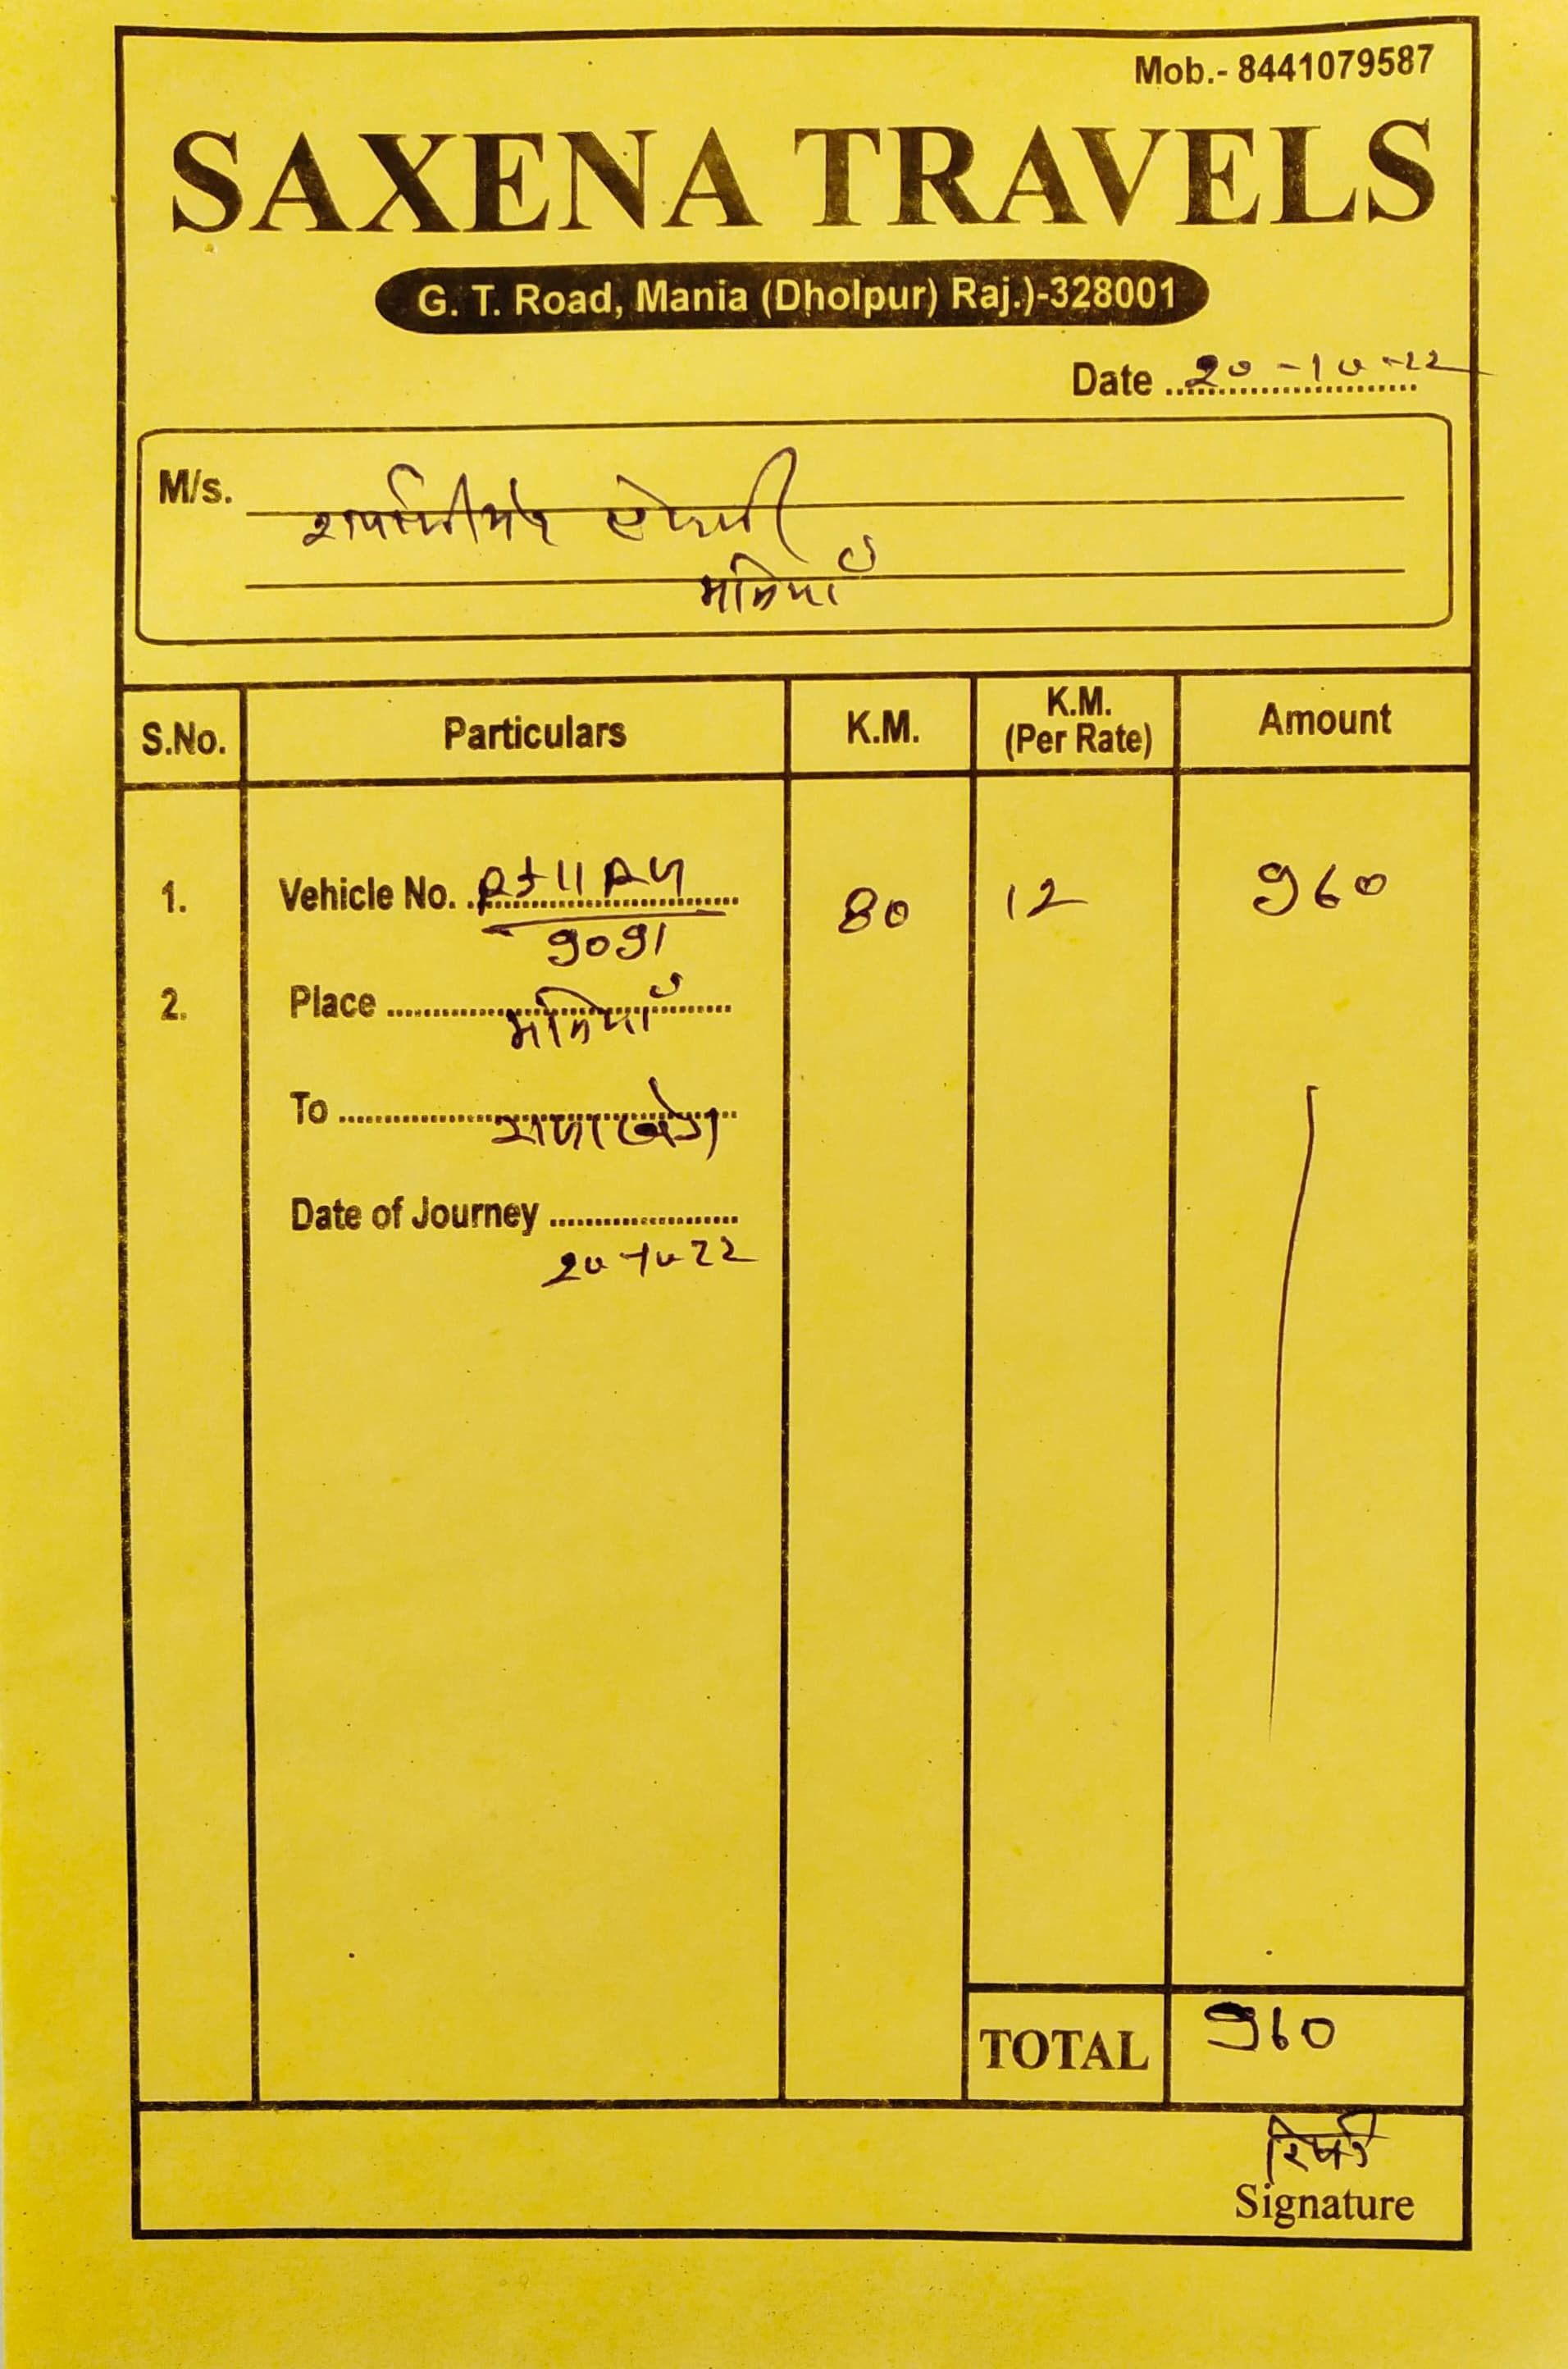 Mob.- 8441079587
SAXENA TRAVELS
G. T. Road, Mania (Dholpur) Raj.)-328001
Date 20-10-22
M/s.
मनियाँ
S.No. Particulars K.M. K.M. (Per Rate) Amount
1. Vehicle No. RJ11 80 12 960
9091
2. Place मनियाँ
To राजाखेड़ा
Date of Journey
20-10-22
TOTAL 960
Signature